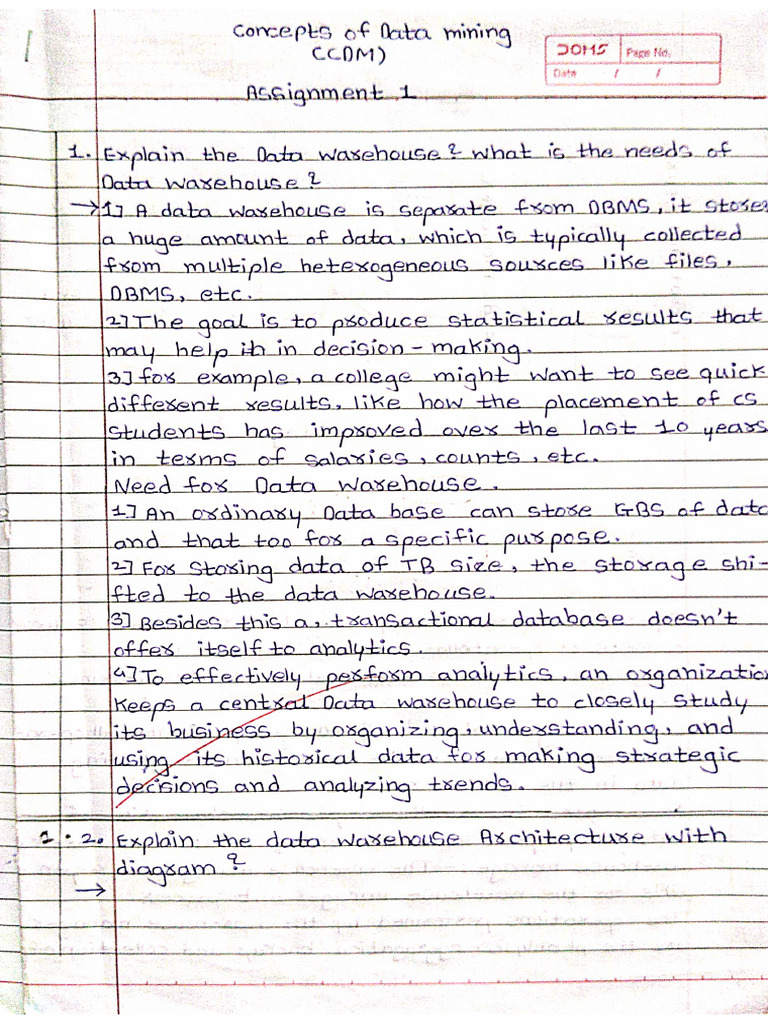 Concepts of Data mining
CCDM)
DOMS Page No.
Date / /
Assignment 1
1. Explain the Data Warehouse? What is the needs of
Data Warehouse?
→1] A data warehouse is separate from DBMS, it stores
a huge amount of data, which is typically collected
from multiple heterogeneous sources like files,
DBMS, etc.
2] The goal is to produce statistical results that
may help in in decision-making.
3] for example, a college might want to see quick
different results, like how the placement of cs
students has improved over the last 10 years
in terms of salaries, counts, etc.
Need for Data Warehouse.
1] An ordinary Data base can store GBS of data
and that too for a specific purpose.
2] For storing data of TB size, the storage shi-
fted to the data warehouse.
3] Besides this a, transactional database doesn't
offer itself to analytics.
4] To effectively perform analytics, an organization
keeps a central Data warehouse to closely study
its business by organizing, understanding, and
using its historical data for making strategic
decisions and analyzing trends.
1. 2. Explain the data warehouse Architecture with
diagram?
→